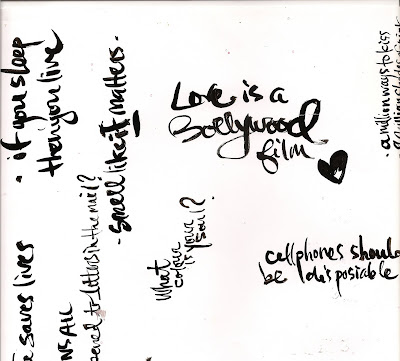 - if you sleep
then you live
- smell like it matters -
Love is a
Bollywood
film
- a million ways to kiss
What
colour
is your
soul?
cellphones should
be disposiable
saves lives
to letters in the mail?